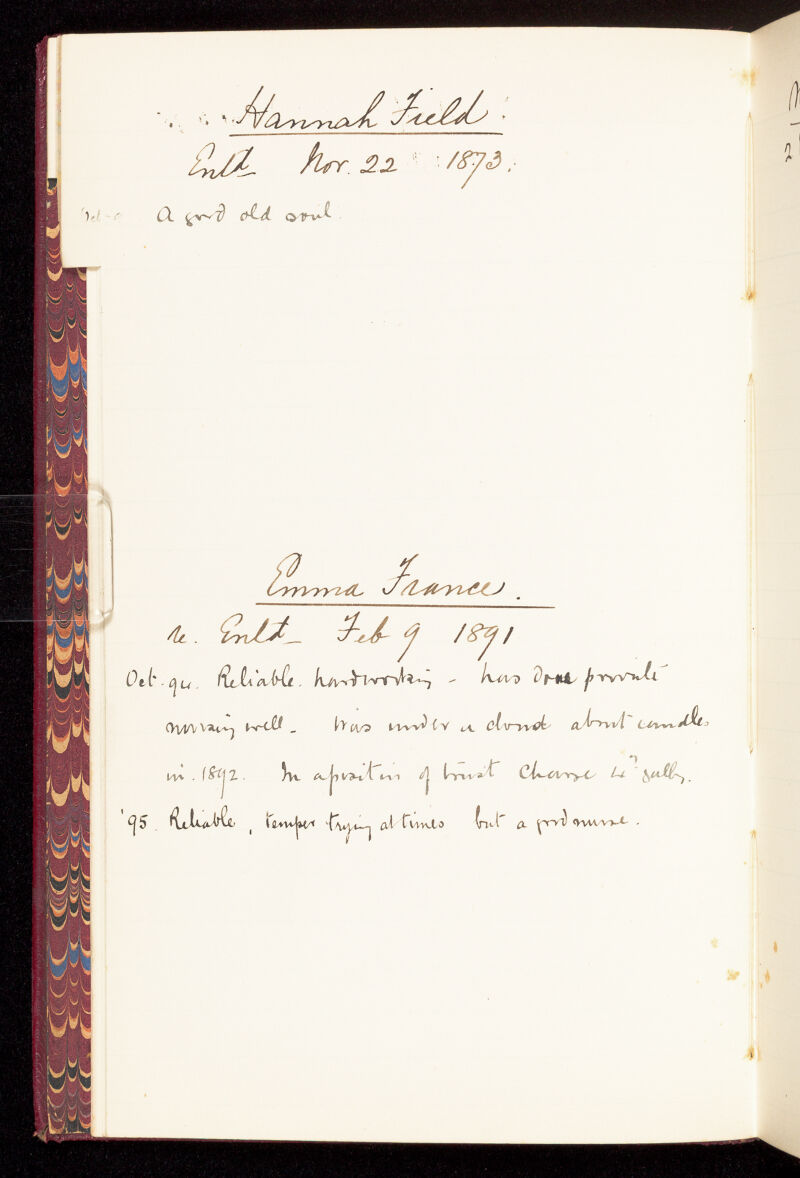 Hannah Field
Entd Nov. 22 1873.
A good old soul
Emma France.
re. Entd Feb 9 1891
Oct. 94. Reliable. hardworking - has done private
nursing well - Was under a cloud about candles
in 1892. In a position of trust Charge 4th
'95. Reliable, temper trying at times but a good nurse.